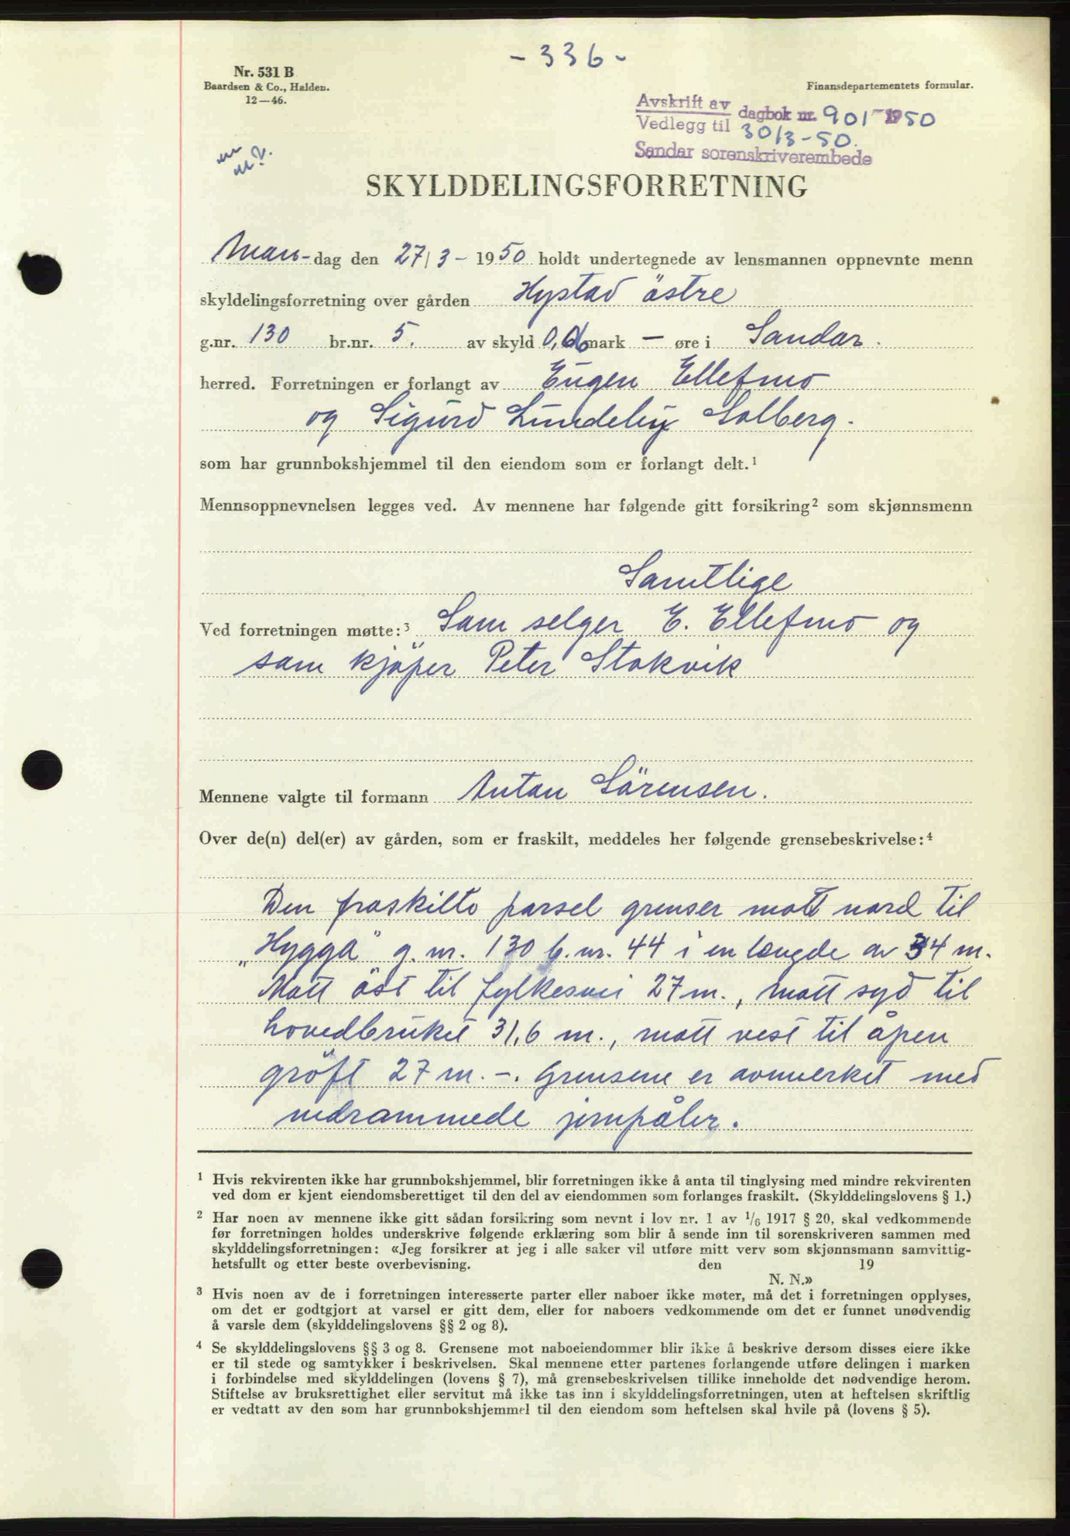 - 336 -
Nr. 531 B
Baardsen & Co., Halden.
12—46.
Finansdepartementets formular.
Avskrift av
Vedlegg til
dagbok nr. 901 - 1950
30/3 - 50.
Sandar sorenskriverembede
SKYLDDELINGSFORRETNING
Man- dag den 27/3 - 1950 holdt undertegnede av lensmannen oppnevnte menn
skyldelingsforretning over gården Hystad östre
g.nr. 130 br.nr. 5. av skyld 0,06 mark — øre i Sandar.
herred. Forretningen er forlangt av Eugen Ellefmo
og Sigurd Lundeby Solberg.
som har grunnbokshjemmel til den eiendom som er forlangt delt.¹
Mennsoppnevnelsen legges ved. Av mennene har følgende gitt forsikring² som skjønnsmenn
Samtlige
Ved forretningen møtte:³ Som selger E. Ellefmo og
som kjöper Peter Stokvik
Mennene valgte til formann Anton Sörensen.
Over de(n) del(er) av gården, som er fraskilt, meddeles her følgende grensebeskrivelse:⁴
Den fraskilte parsel grenser mott nord til
„Hygga" g.nr. 130 b.nr. 44 i en længde av 34 m.
Mott öst til fylkesvei 27 m., mott syd til
hovedbruket 31,6 m., mott vest til åpen
gröft 27 m. -. Grensene er avmerket med
nedrammede jernpåler.
¹ Hvis rekvirenten ikke har grunnbokshjemmel, blir forretningen ikke å anta til tinglysing med mindre rekvirenten
ved dom er kjent eiendomsberettiget til den del av eiendommen som forlanges fraskilt. (Skylddelingslovens § 1.)
² Har noen av mennene ikke gitt sådan forsikring som nevnt i lov nr. 1 av 1/6 1917 § 20, skal vedkommende
før forretningen holdes underskrive følgende erklæring som blir å sende inn til sorenskriveren sammen med
skylddelingsforretningen: «Jeg forsikrer at jeg i alle saker vil utføre mitt verv som skjønnsmann samvittig-
hetsfullt og etter beste overbevisning. den 19
N. N.»
³ Hvis noen av de i forretningen interesserte parter eller naboer ikke møter, må det i forretningen opplyses,
om det er godtgjort at varsel er gitt dem, eller for naboers vedkommende om det er funnet unødvendig
å varsle dem (skylddelingslovens §§ 2 og 8).
⁴ Se skylddelingslovens §§ 3 og 8. Grensene mot naboeiendommer blir ikke å beskrive dersom disses eiere ikke
er til stede og samtykker i beskrivelsen. Skal mennene etter partenes forlangende utføre delingen i marken
i forbindelse med skylddelingen (lovens § 7), må grensebeskrivelsen tillike inneholde det nødvendige herom.
Stiftelse av bruksrettighet eller servitut må ikke tas inn i skylddelingsforretningen, uten at heftelsen skriftlig
er vedtatt av den som har grunnbokshjemmel til den eiendom som heftelsen skal hvile på (lovens § 5).